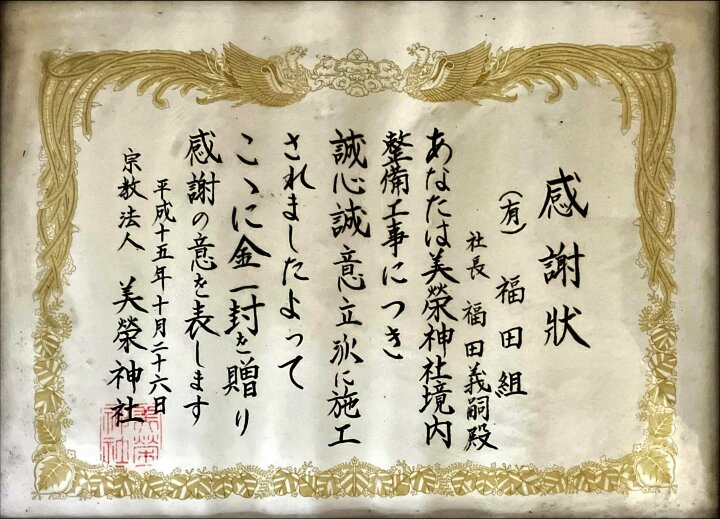 感謝狀
(有) 福田組
社長 福田義嗣殿
あなたは美榮神社境内
整備工事につき
誠心誠意立派に施工
されましたよって
こゝに金一封を贈り
感謝の意を表します
平成十五年十月二十六日
宗教法人 美榮神社
美榮神社